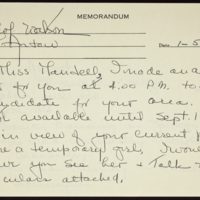 MEMORANDUM
of Watson
Date 1-5
Miss Mandell, I made an a
for you at 4:00 P.M. to
didate for your area.
available until Sept. 1
in view of your current
e a temporary girl,
you see her & talk
attached.